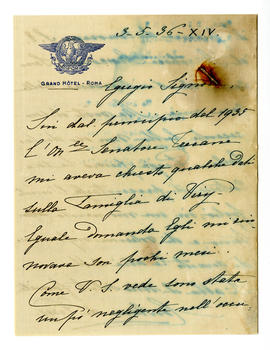 3-5-36-XIV
GRAND HÔTEL - ROMA
Egregio Signore,
Sin dal principio del 1935
l'On. Senatore
mi aveva chiesto qualche
sulla Famiglia di Viry
Eguale domanda Egli mi rin-
novava son pochi mesi.
Come V. S. vede sono stata
un pò negligente nell'occu-